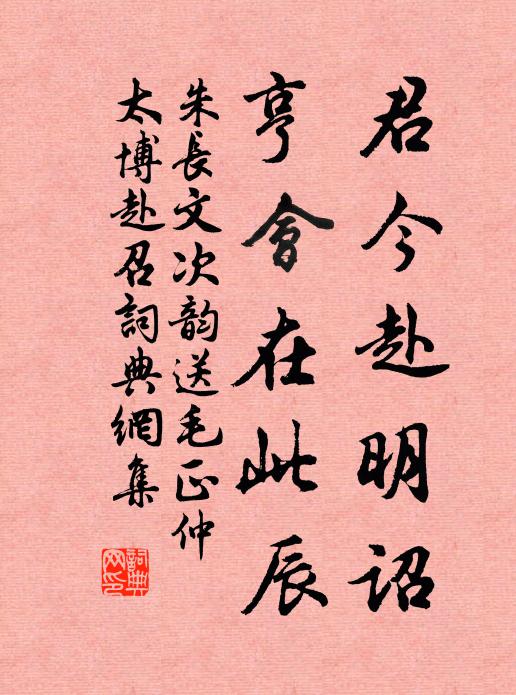 君今赴明詔
亨會在此辰
朱長文次韵送毛正仲
太博赴召詞典網集
詞典
网印